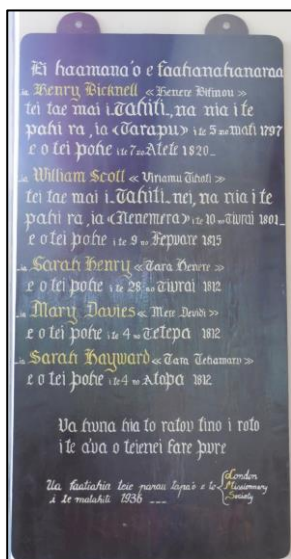 Ei haamana'o e faahanahanaraa
ia Henry Bicknell « Henere Bitinou »
tei tae mai i Tahiti, na nia i te
pahi ra, ia « Tarapu » i te 5 no mati 1797
e o tei pohe i te 7 no Atete 1820_
_ia William Scott « Viriamu Tihati »
tei tae mai i Tahiti nei, na nia i te
pahi ra, ia « Nenemera » i te 10 no Tiurai 1801_
e o tei pohe i te 9 no Fepuare 1815
_ia Sarah Henry « Tara Henere »
e o tei pohe i te 28 no Tiurai 1812
_ia Mary Davies « Mere Devidi »
e o tei pohe i te 4 no Tetepa 1812
_ia Sarah Hayward « Tara Tehamaru »
e o tei pohe i te 4 no Atopa 1812
Ua huna hia to ratou tino i roto
i te a'ua o teienei fare pure
Ua faatiahia teie parau tapa'o e te { London Missionary Society
i te matahiti 1936 ___